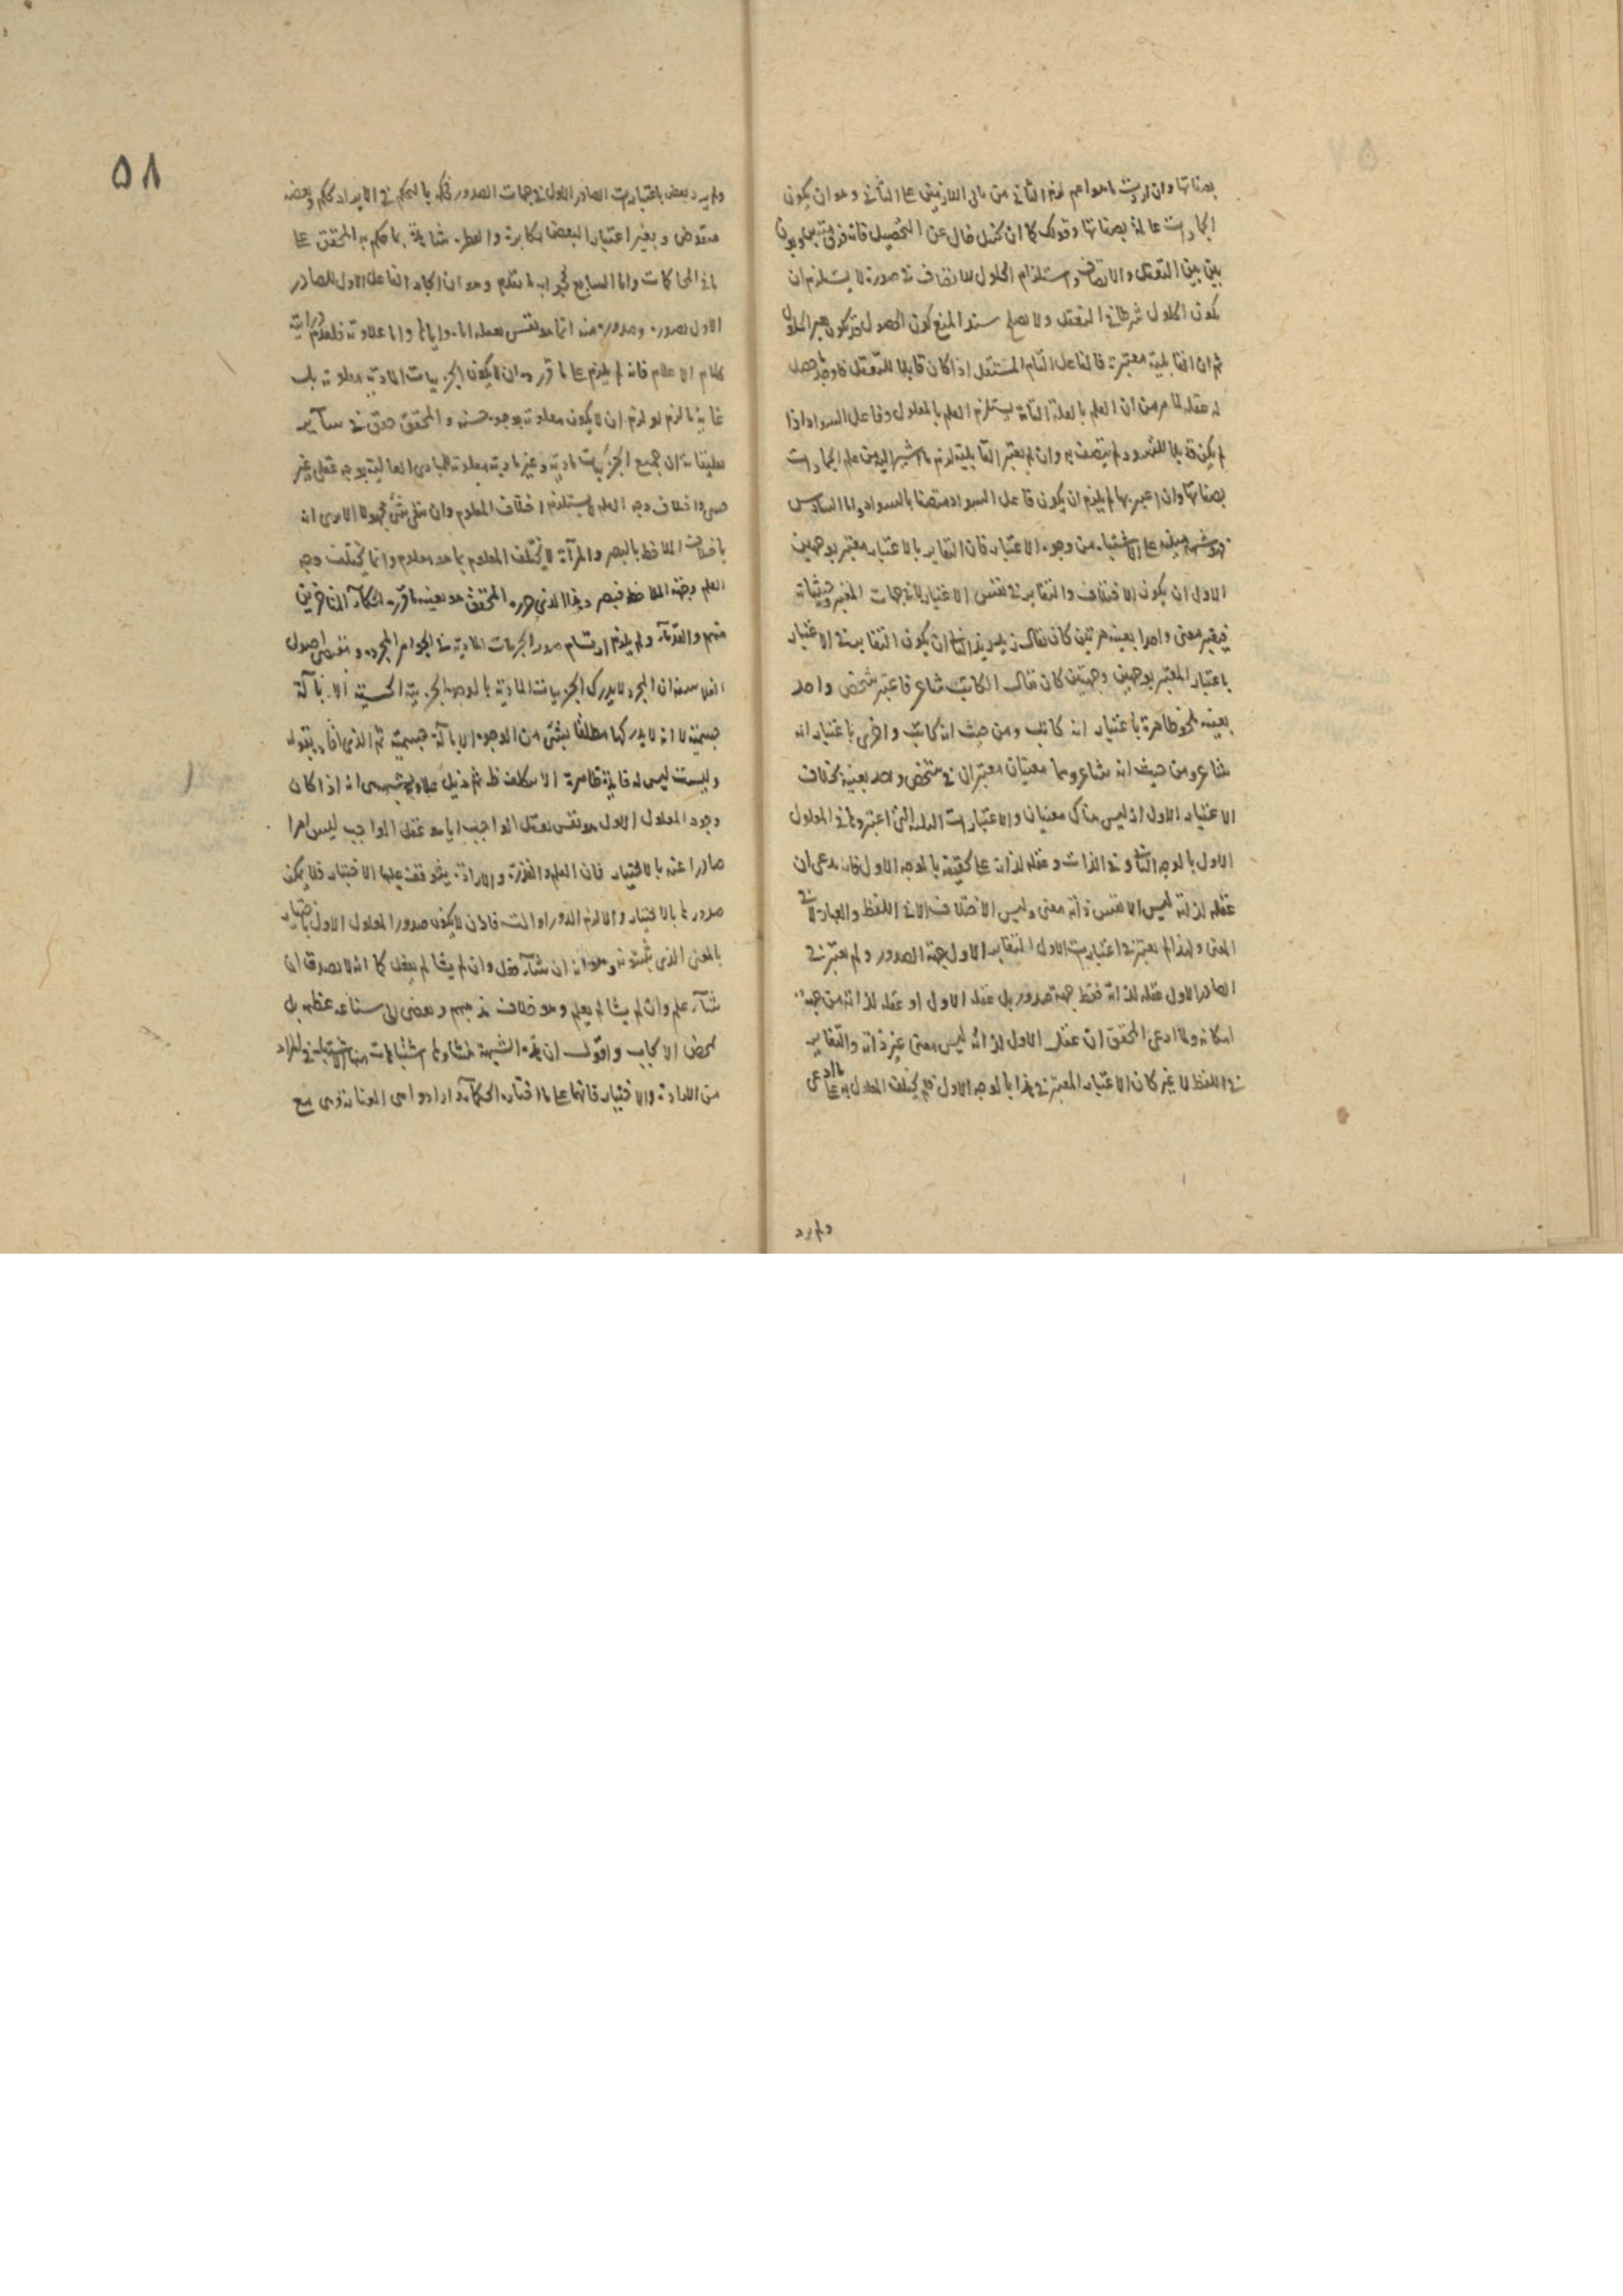 بصفاتها وان اريد ما هو اعم لزم الثاني من باقي اللازمين على الثاني وهو ان يكون
الجمادات عالمة بصفاتها وقولك كما ان كنبل خال عن التحصيل فانه فرق بين
بين بين التعقل والاتصاف واستلزام الحلول للاتصاف في صورة لا يستلزم ان
يكون الحلول شرطا في التعقل ولا يصلح سند المنع كون الحصول قد يكون بغير الحلول
ثم ان القابلية معتبرة فالفاعل التام المستقل اذا كان قابلا للتعقل فاوجد حصل
له عقله لما مر من ان العلم بالعلة التامة يستلزم العلم بالمعلول وفاعل السواد اذا
لم يكن قابلا للسواد لم يتصف به وان لم يعتبر القابلية لزم ما اشير اليه من علم الجمادات
بصفاتها وان اعتبر بها لم يلزم ان يكون فاعل السواد متصفا بالسواد واما السادس
من وجوه الاعتبار فان التغاير بالاعتبار معتبر بوجهين
الاول ان يكون الاختلاف والتغاير في نفس الاعتبار لا في جهات المعتبر وحيثياته
فيعتبر معنى واحدا بعينه مرتين كان يقال زيد زيد الثاني ان يكون التغاير في الاعتبار
باعتبار المعتبر بوجهين وجهتين كان يقال الكاتب شاعر فاعتبر شخص واحد
بعينه باعتبار انه كاتب ومن حيث انه كاتب واخرى باعتبار انه
شاعر ومن حيث انه شاعر وهما معنيان معتبران في شخص واحد بعينه بخلاف
الاعتبار الاول اذ ليس هناك معنيان والاعتبارات التي اعتبروها في المعلول
الاول بالوجه الثاني وفي الذات وعقله لذاته على الحقيقة بالوجه الاول فانه يدعي ان
عقله لذاته ليس الا نفس ذاته معنى وليس الاختلاف الا في اللفظ والعبارة لا في
المعنى ولهذا لم يعتبر في اعتبارات الاول المتغاير الاول جهة الصدور ولم يعتبر في
الصادر الاول عقله لذاته فقط جهة صدور بل عقله الاول او عقله لذاته من جهة
امكانه ولما ادعى المحقق ان عقل الاول لذاته ليس معنى غير ذاته والتغاير
في اللفظ لا غير كان الاعتبار المعتبر في هذا بالوجه الاول فلم يختلف المعلول به على ما ادعى
ولم يرد
٥٨
ولم يرد بعض باعتبارات الصادر الاول في جهات الصدور فحكمه بالتحكم في الايراد تحكم وبعضه
منقوض وبغير اعتبار البعض مكابرة والعطر شاهد بما حكم به المحقق على
ما في المحاكمات واما السابع فجوابه ما تقدم وهو ان ايجاد الفاعل الاول للصادر
الاول بصوره وصدوره منه انما هو نفس تعقله اياه واما علاوته فلعدم درايته
كلام الاعلام فانه لم يلزم على ما قرره ان لا يكون الجزئيات المادية معلومة بل
غاية ما لزم لو لزم ان لا يكون معلومة بوجوه حسية والمحقق حقق في سائر
تعليقاته ان جميع الجزئيات مادية وغير مادية معلومة للمبادي العالية بوجه عقلي غير
حسي واختلاف وجه العلم لا يستلزم اختلاف المعلوم وان بقي شيء مجهولا الا يرى انه
باختلاف الملاحظ بالبصر والمرآة لا يختلف المعلوم بما هو معلوم وانما يختلف وجه
العلم وجهة الملاحظ فتبصر وهذا الذي حرره المحقق هو بعينه ما قرره الحكماء المتاخرين
منهم والقدماء ولم يلزم ارتسام صور الجزئيات المادية في الجواهر المجردة ومقتضى اصول
الفلاسفة ان المجرد لا يدرك الجزئيات المادية بالوجوه الجزئية الحسية الا بآلة
جسمية لا انه لا يدركها مطلقا بشيء من الوجوه الا بآلة جسمية ثم الذي افاد بقوله
وليست ليس له فائدة ظاهرة الا بتكلف ثم ذيل علاوته بشبهة هي انه اذا كان
وجود المعلول الاول هو نفس تعقل الواجب اياه وعقل الواجب ليس امرا
صادرا عنه بالاختيار فان العلم والقدرة والارادة يتوقف عليها الاختيار فلا يمكن
صدورها بالاختيار والا لزم الدور او التسلسل فاذن لا يكون صدور المعلول الاول باختياره
بالمعنى الذي يثبتونه وهو انه ان شاء فعل وان لم يشا لم يفعل كما انه لا يصدق ان
شاء علم وان لم يشا لم يعلم وهو خلاف مذهبهم ويفضي الى شناعة عظيمة بل
محض الايجاب واقول ان هذه الشبهة منشاؤها اشتباهات في المراد
من الارادة والاختيار فانها على ما اختاره الحكماء وارادوا هي العناية وهي مع